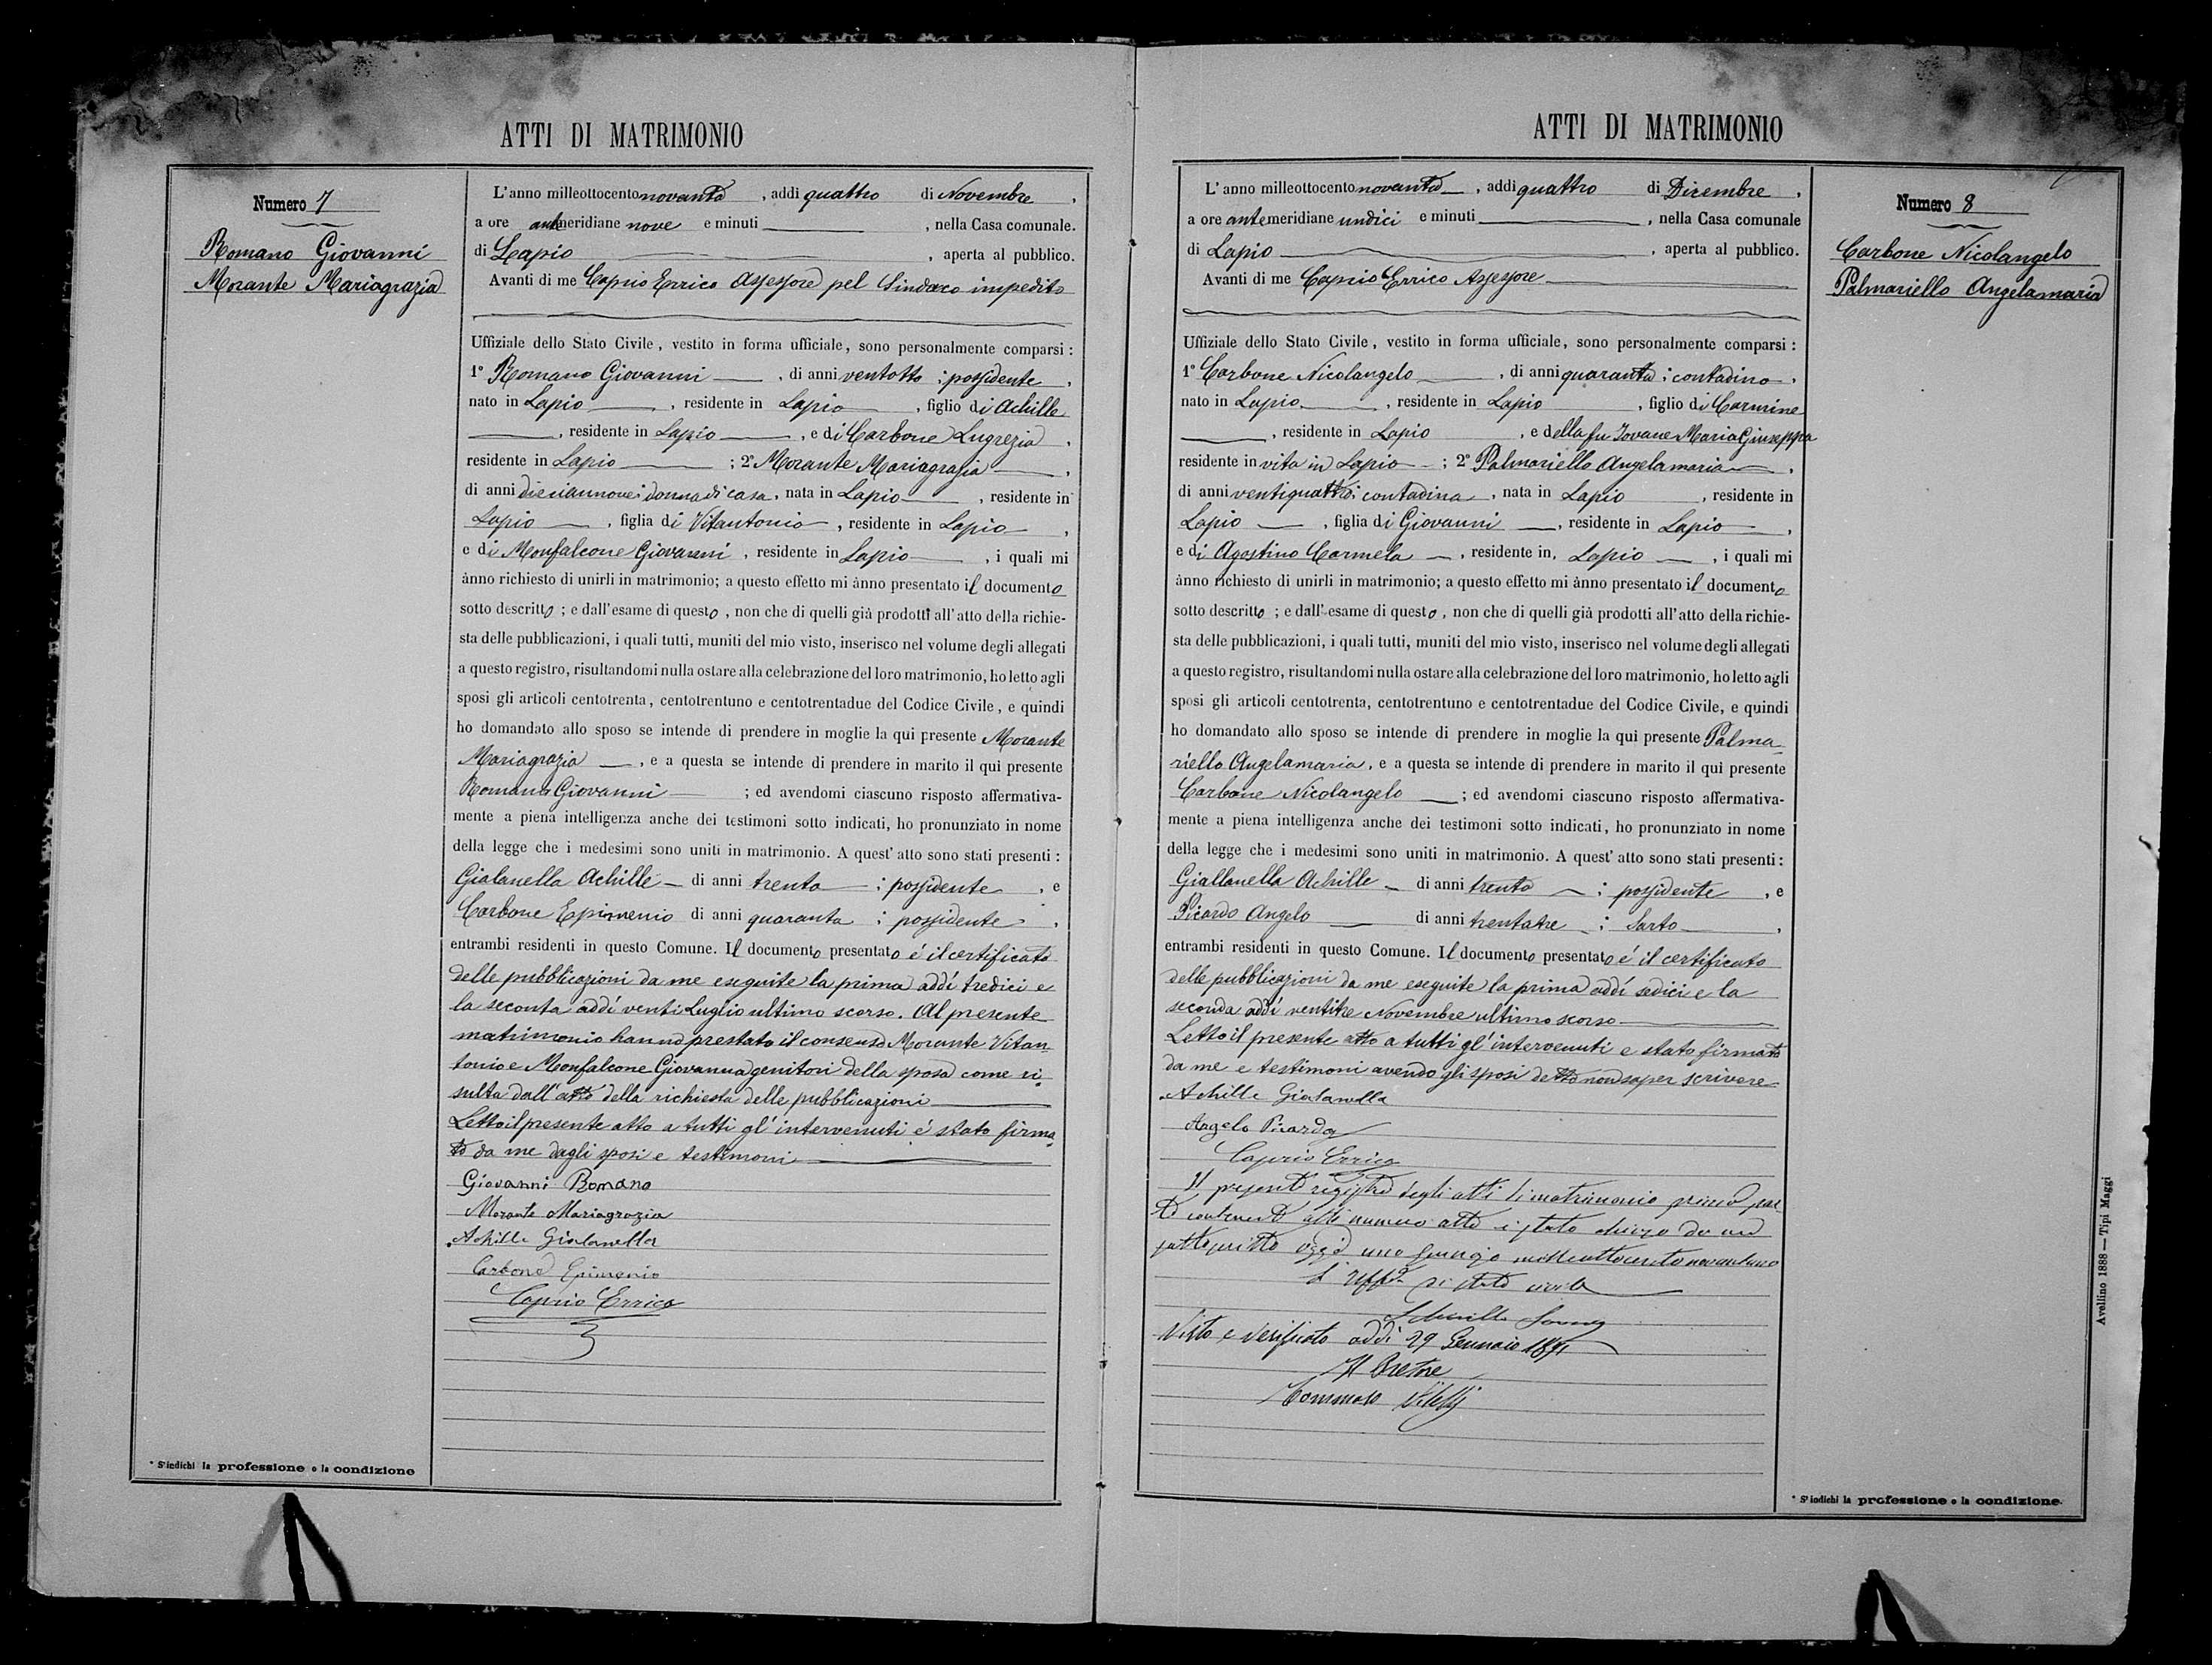 ATTI DI MATRIMONIO
Numero 7
Romano Giovanni
Morante Mariagrazia
L'anno milleottocentonovanta, addì quattro di Novembre,
a ore antemeridiane nove e minuti , nella Casa comunale.
di Lapio , aperta al pubblico.
Avanti di me Caprio Errico Assessore pel Sindaco impedito
Uffiziale dello Stato Civile, vestito in forma ufficiale, sono personalmente comparsi:
1° Romano Giovanni , di anni ventotto ; possidente ,
nato in Lapio , residente in Lapio , figlio di Achille
, residente in Lapio , e di Carbone Lugrezia ,
residente in Lapio ; 2° Morante Mariagrazia ,
di anni dieciannove; donna di casa, nata in Lapio , residente in
Lapio , figlia di Vitantonio , residente in Lapio ,
e di Monfalcone Giovanni , residente in Lapio , i quali mi
ànno richiesto di unirli in matrimonio; a questo effetto mi ànno presentato il documento
sotto descritto ; e dall'esame di questo , non che di quelli già prodotti all'atto della richie-
sta delle pubblicazioni, i quali tutti, muniti del mio visto, inserisco nel volume degli allegati
a questo registro, risultandomi nulla ostare alla celebrazione del loro matrimonio, ho letto agli
sposi gli articoli centotrenta, centotrentuno e centotrentadue del Codice Civile, e quindi
ho domandato allo sposo se intende di prendere in moglie la qui presente Morante
Mariagrazia , e a questa se intende di prendere in marito il qui presente
Romano Giovanni ; ed avendomi ciascuno risposto affermativa-
mente a piena intelligenza anche dei testimoni sotto indicati, ho pronunziato in nome
della legge che i medesimi sono uniti in matrimonio. A quest'atto sono stati presenti:
Gialanella Achille di anni trenta ; possidente , e
Carbone Epimenio di anni quaranta ; possidente ,
entrambi residenti in questo Comune. Il documento presentato é il certificato
delle pubblicazioni da me eseguite la prima addí tredici e
la seconta addí venti Luglio ultimo scorso. Al presente
matrimonio hanno prestato il consenso Morante Vitan-
tonio e Monfalcone Giovanna genitori della sposa come ri-
sulta dall'atto della richiesta delle pubblicazioni
Letto il presente atto a tutti gl'intervenuti é stato firma-
to da me dagli sposi e testimoni
Giovanni Romano
Morante Mariagrazia
Achille Gialanella
Carbone Epimenio
Caprio Errico
* S'indichi la professione o la condizione
ATTI DI MATRIMONIO
Numero 8
Carbone Nicolangelo
Palmariello Angelamaria
L'anno milleottocentonovanta , addì quattro di Dicembre ,
a ore antemeridiane undici e minuti , nella Casa comunale
di Lapio , aperta al pubblico.
Avanti di me Caprio Errico Assessore
Uffiziale dello Stato Civile, vestito in forma ufficiale, sono personalmente comparsi:
1° Carbone Nicolangelo , di anni quaranta ; contadino ,
nato in Lapio , residente in Lapio , figlio di Carmine
, residente in Lapio , e della fu Iovane Maria Giuseppa
residente in vita in Lapio ; 2° Palmariello Angelamaria ,
di anni ventiquattro; contadina , nata in Lapio , residente in
Lapio , figlia di Giovanni , residente in Lapio ,
e di Agostino Carmela , residente in Lapio , i quali mi
ànno richiesto di unirli in matrimonio; a questo effetto mi ànno presentato il documento
sotto descritto ; e dall'esame di questo , non che di quelli già prodotti all'atto della richie-
sta delle pubblicazioni, i quali tutti, muniti del mio visto, inserisco nel volume degli allegati
a questo registro, risultandomi nulla ostare alla celebrazione del loro matrimonio, ho letto agli
sposi gli articoli centotrenta, centotrentuno e centotrentadue del Codice Civile, e quindi
ho domandato allo sposo se intende di prendere in moglie la qui presente Palma-
riello Angelamaria, e a questa se intende di prendere in marito il qui presente
Carbone Nicolangelo ; ed avendomi ciascuno risposto affermativa-
mente a piena intelligenza anche dei testimoni sotto indicati, ho pronunziato in nome
della legge che i medesimi sono uniti in matrimonio. A quest'atto sono stati presenti:
Giallanella Achille di anni trenta ; possidente , e
Picardo Angelo di anni trentatre ; Sarto ,
entrambi residenti in questo Comune. Il documento presentato é il certificato
delle pubblicazioni da me eseguite la prima addí sedici e la
seconda addí ventitre Novembre ultimo scorso
Letto il presente atto a tutti gl'intervenuti e stato firmato
da me e testimoni avendo gli sposi detto non saper scrivere
Achille Gialanella
Angelo Picardo
Caprio Errico
Il presente registro degli atti di matrimonio
contenente atti numero otto è stato chiuso da me
sottoscritto oggi uno Gennajo milleottocentonovantuno
L'Uff. di stato civile
Visto e verificato addì 29 Gennaio 1891
Il Pretore
Tommaso
* S'indichi la professione o la condizione.
Avellino 1888 — Tipi Maggi